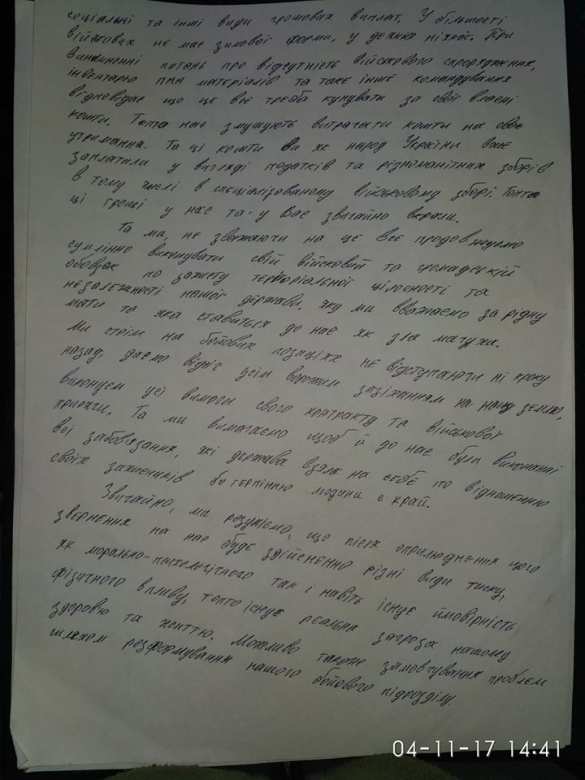 соціальні та інші види грошових виплат. У більшості
військових не має зимової форми, у декого ніякої. При
виникненні питань про відсутність військового спорядження,
інвентарю ПММ матеріалів та таке інше командування
відповідає що це все треба купувати за свої власні
кошти. Тобто нас змушують витрачати кошти на своє
утримання. Та ці кошти ви як народ України вже
заплатили у вигляді податків та різноманітних зборів
в тому числі в спеціалізованому військовому зборі. Тобто
ці гроші у нас та у Вас звичайно вкрали.
Та ми, не зважаючи на це все продовжуємо
сумлінно виконувати свій військовий та громадській
обовязок по захисту територіальної цілосності та
незалежності нашої держави, яку ми вважаємо за рідну
мати та яка ставиться до нас як зла мачуха.
Ми стоїм на бойових позиціях не відступаючи ні кроку
назад, даємо відпіс усім ворожим зазіханням на нашу землю,
виконуєм усі вимоги свого контракту та військової
присяги. Та ми вимагаємо щоб й до нас були виконанні
всі забов'язання, які держава взяла на себе по відношенню
своїх захисників бо терпінню людини є край.
Звичайно, ми розуміємо, що після оприлюднення цього
звернення на нас буде здійсненно різні види тиску,
як морально-психологічного так і навіть існує ймовірність
фізичного впливу, тобто існує реальна загроза нашому
здоровю та життю. Можливо також замовчування проблем
шляхом розформування нашого бойового підрозділу
04-11-17 14:41